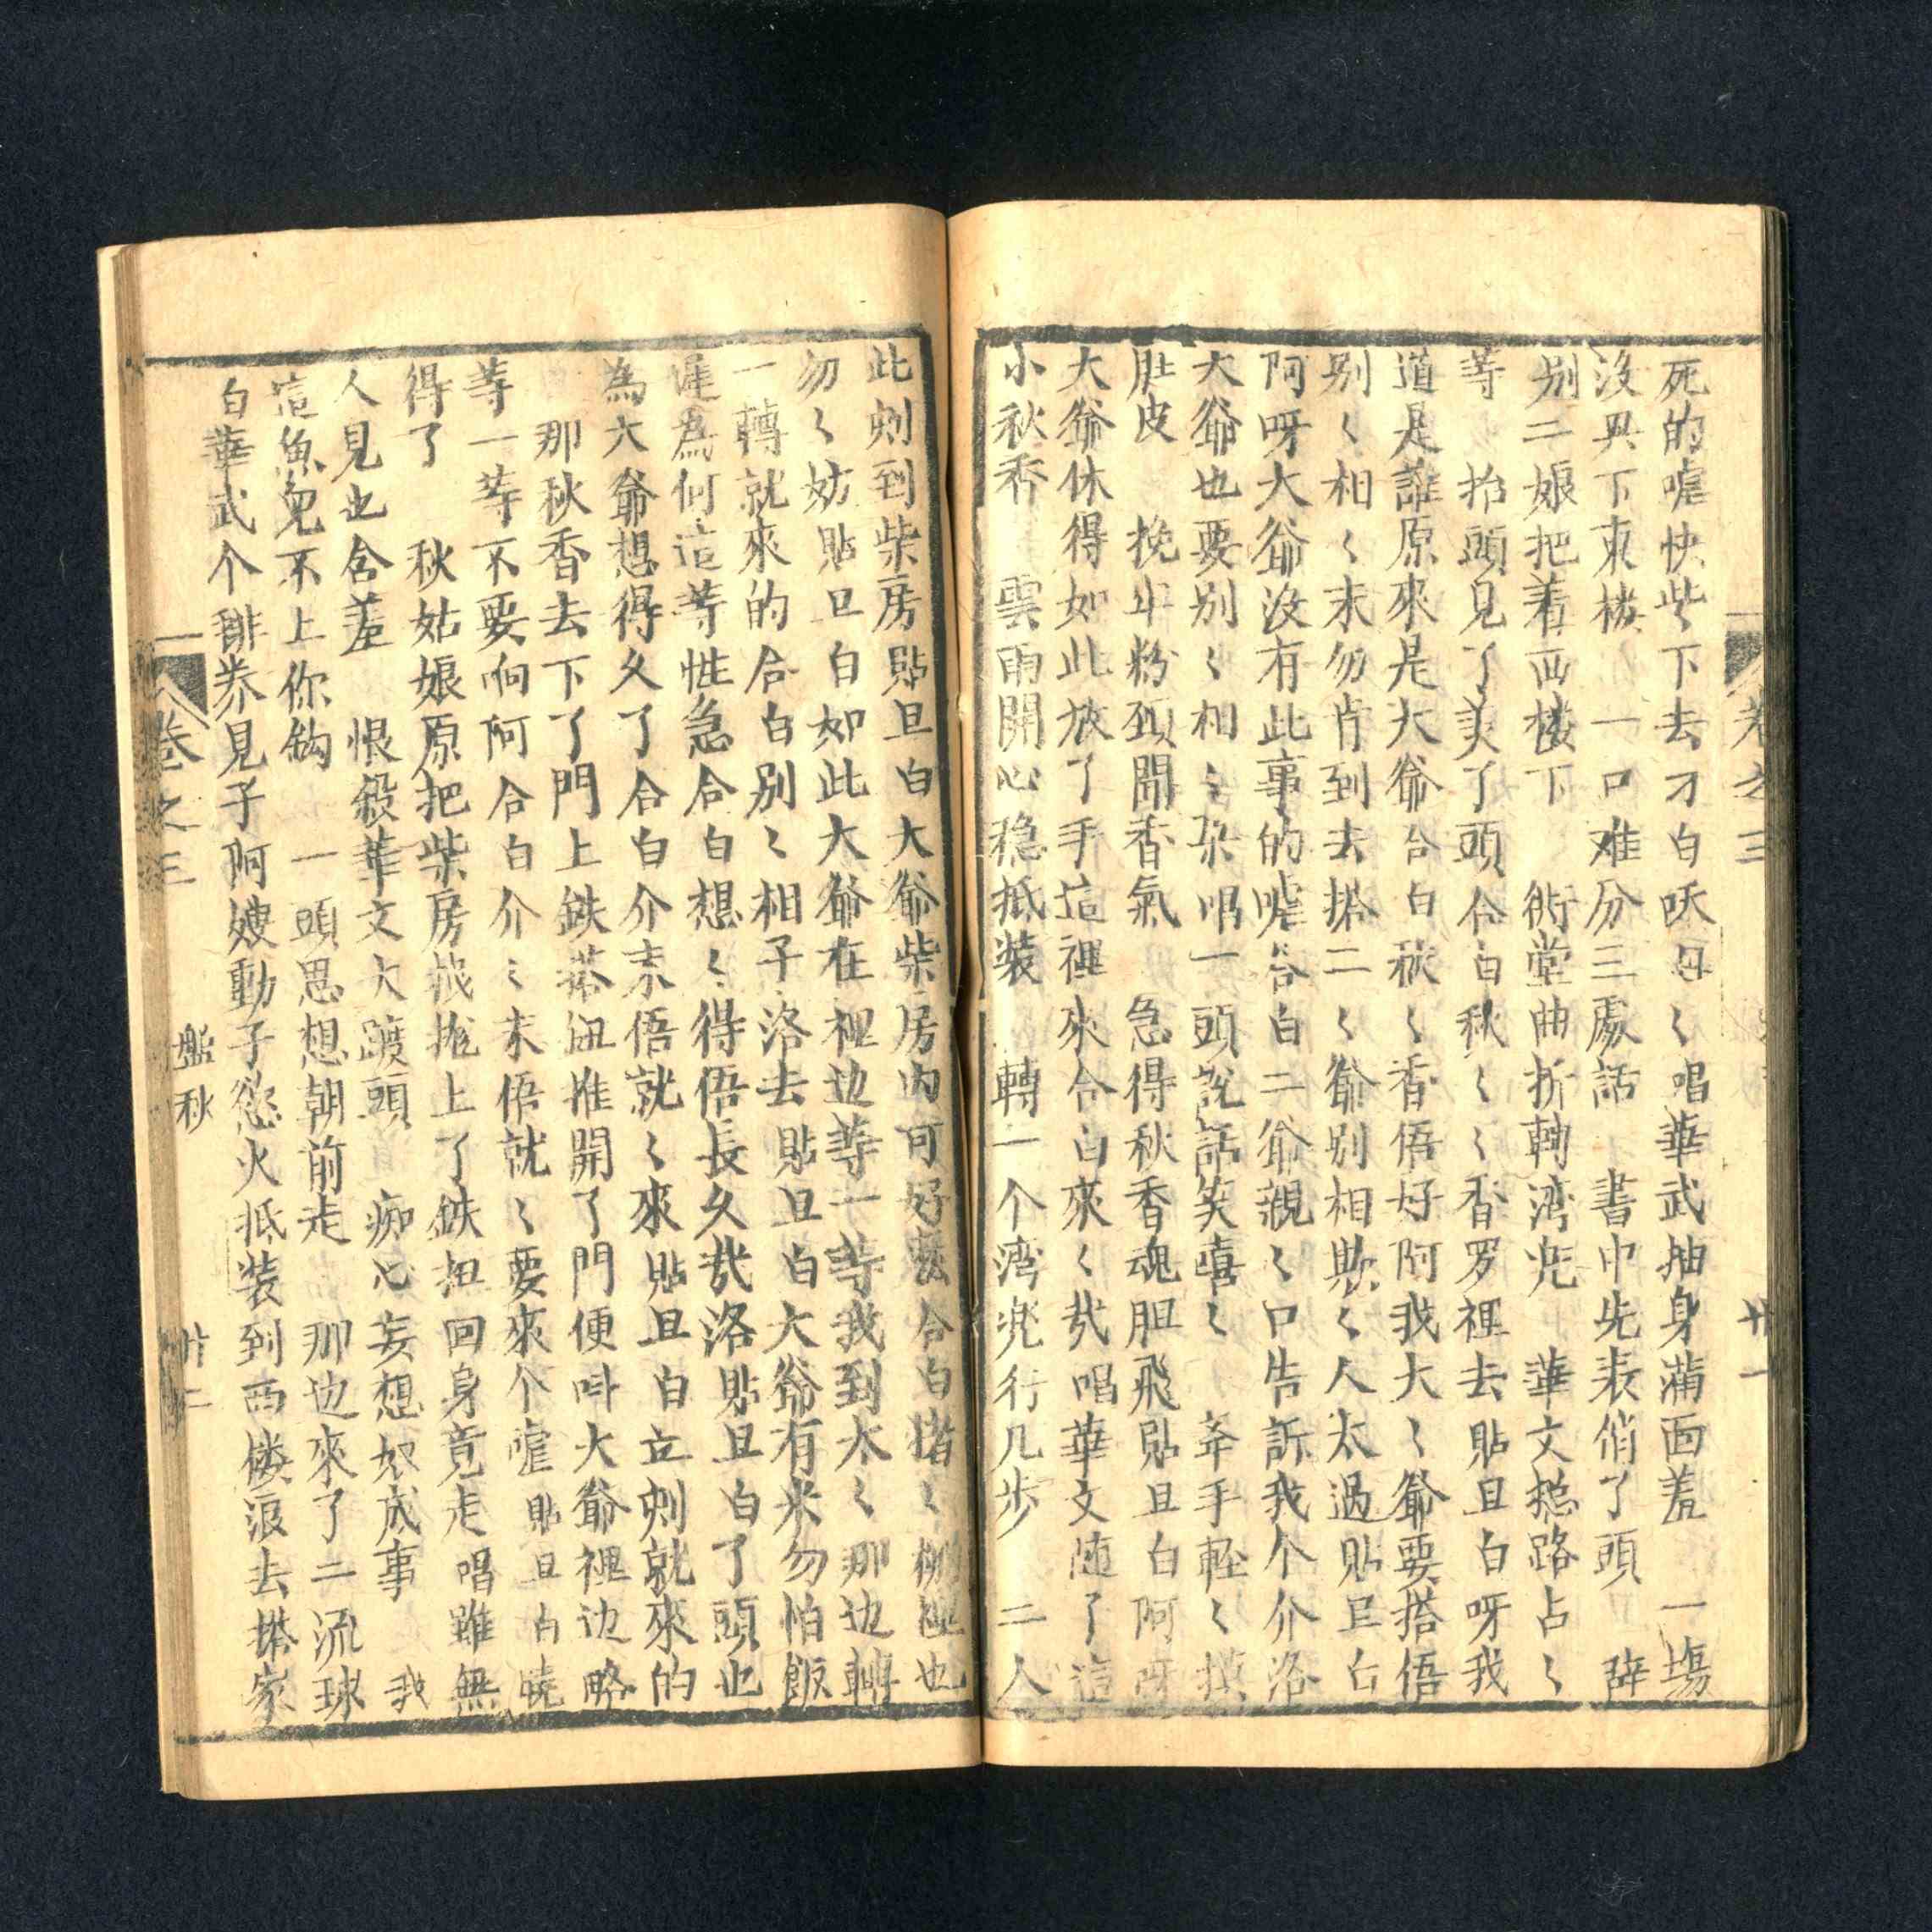 卷之三
廿一
死的嚯快些下去刁白呀母〻唱華武抽身滿面羞　一塲
沒興下東楼　一口难分三處話　書中先表俏了頭　辞
别二娘把着西楼下　衖堂曲折轉湾兜　華文捴路占〻
等　抬頭見了美了頭合白秋〻〻香罗裡去貼旦白呀我
道是誰原來是大爺合白秋〻香𠍽好阿我大〻爺要搭𠍽
别〻相〻末勿肯到去搭二〻爺别相欺〻人太過貼旦白
阿呀大爺沒有此事的嚯合白二爺親〻口告訴我个介洛
大爺也要别〻相〻　唱一頭說話笑嘻〻　手輕〻摸
肚皮　挽牢粉頚聞香氣　急得秋香魂胆飛貼旦白阿呀
大爺休得如此放了手這裡來合白來〻哉唱華文随了這
小秋香　雲雨開心穏抵装　轉一个湾兜行几步　二人
此刻到柴房貼旦白大爺柴房内可好麽合白㨪〻　也
勿〻妨貼旦白如此大爺在裡边等一等我到太〻那边轉
一轉就來的合白别〻相子洛去貼旦白大爺有米勿怕飯
遲為何這等性急合白想〻得𠍽長久哉洛貼旦白了頭也
為大爺想得久了合白介末𠍽就〻來貼旦白立刻就來的
那秋香去下了門上鉄搭𨥁推開了門便呌大爺裡边略
等一等不要响阿合白介〻末𠍽就〻要來个嚯貼旦白曉
得了　秋姑娘原把柴房　上了鉄扭回身竟走唱雖無
人見也含羞　恨殺華文大　頭　痴心妄想如成事　我
這魚兒不上你鈎　一頭思想朝前走　那边來了二流球
白華武个　見子阿嫂動子慾火抵装到西楼浪去搭家
卷之三
艦秋
廿二